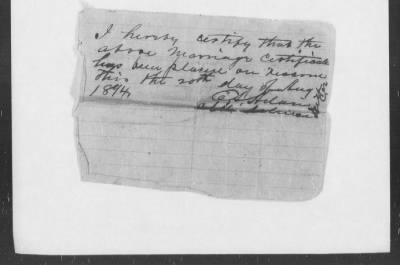 I hereby certify that the
above Marriage Certificate
has been placed on record
this the 20th day of Aug
1894,